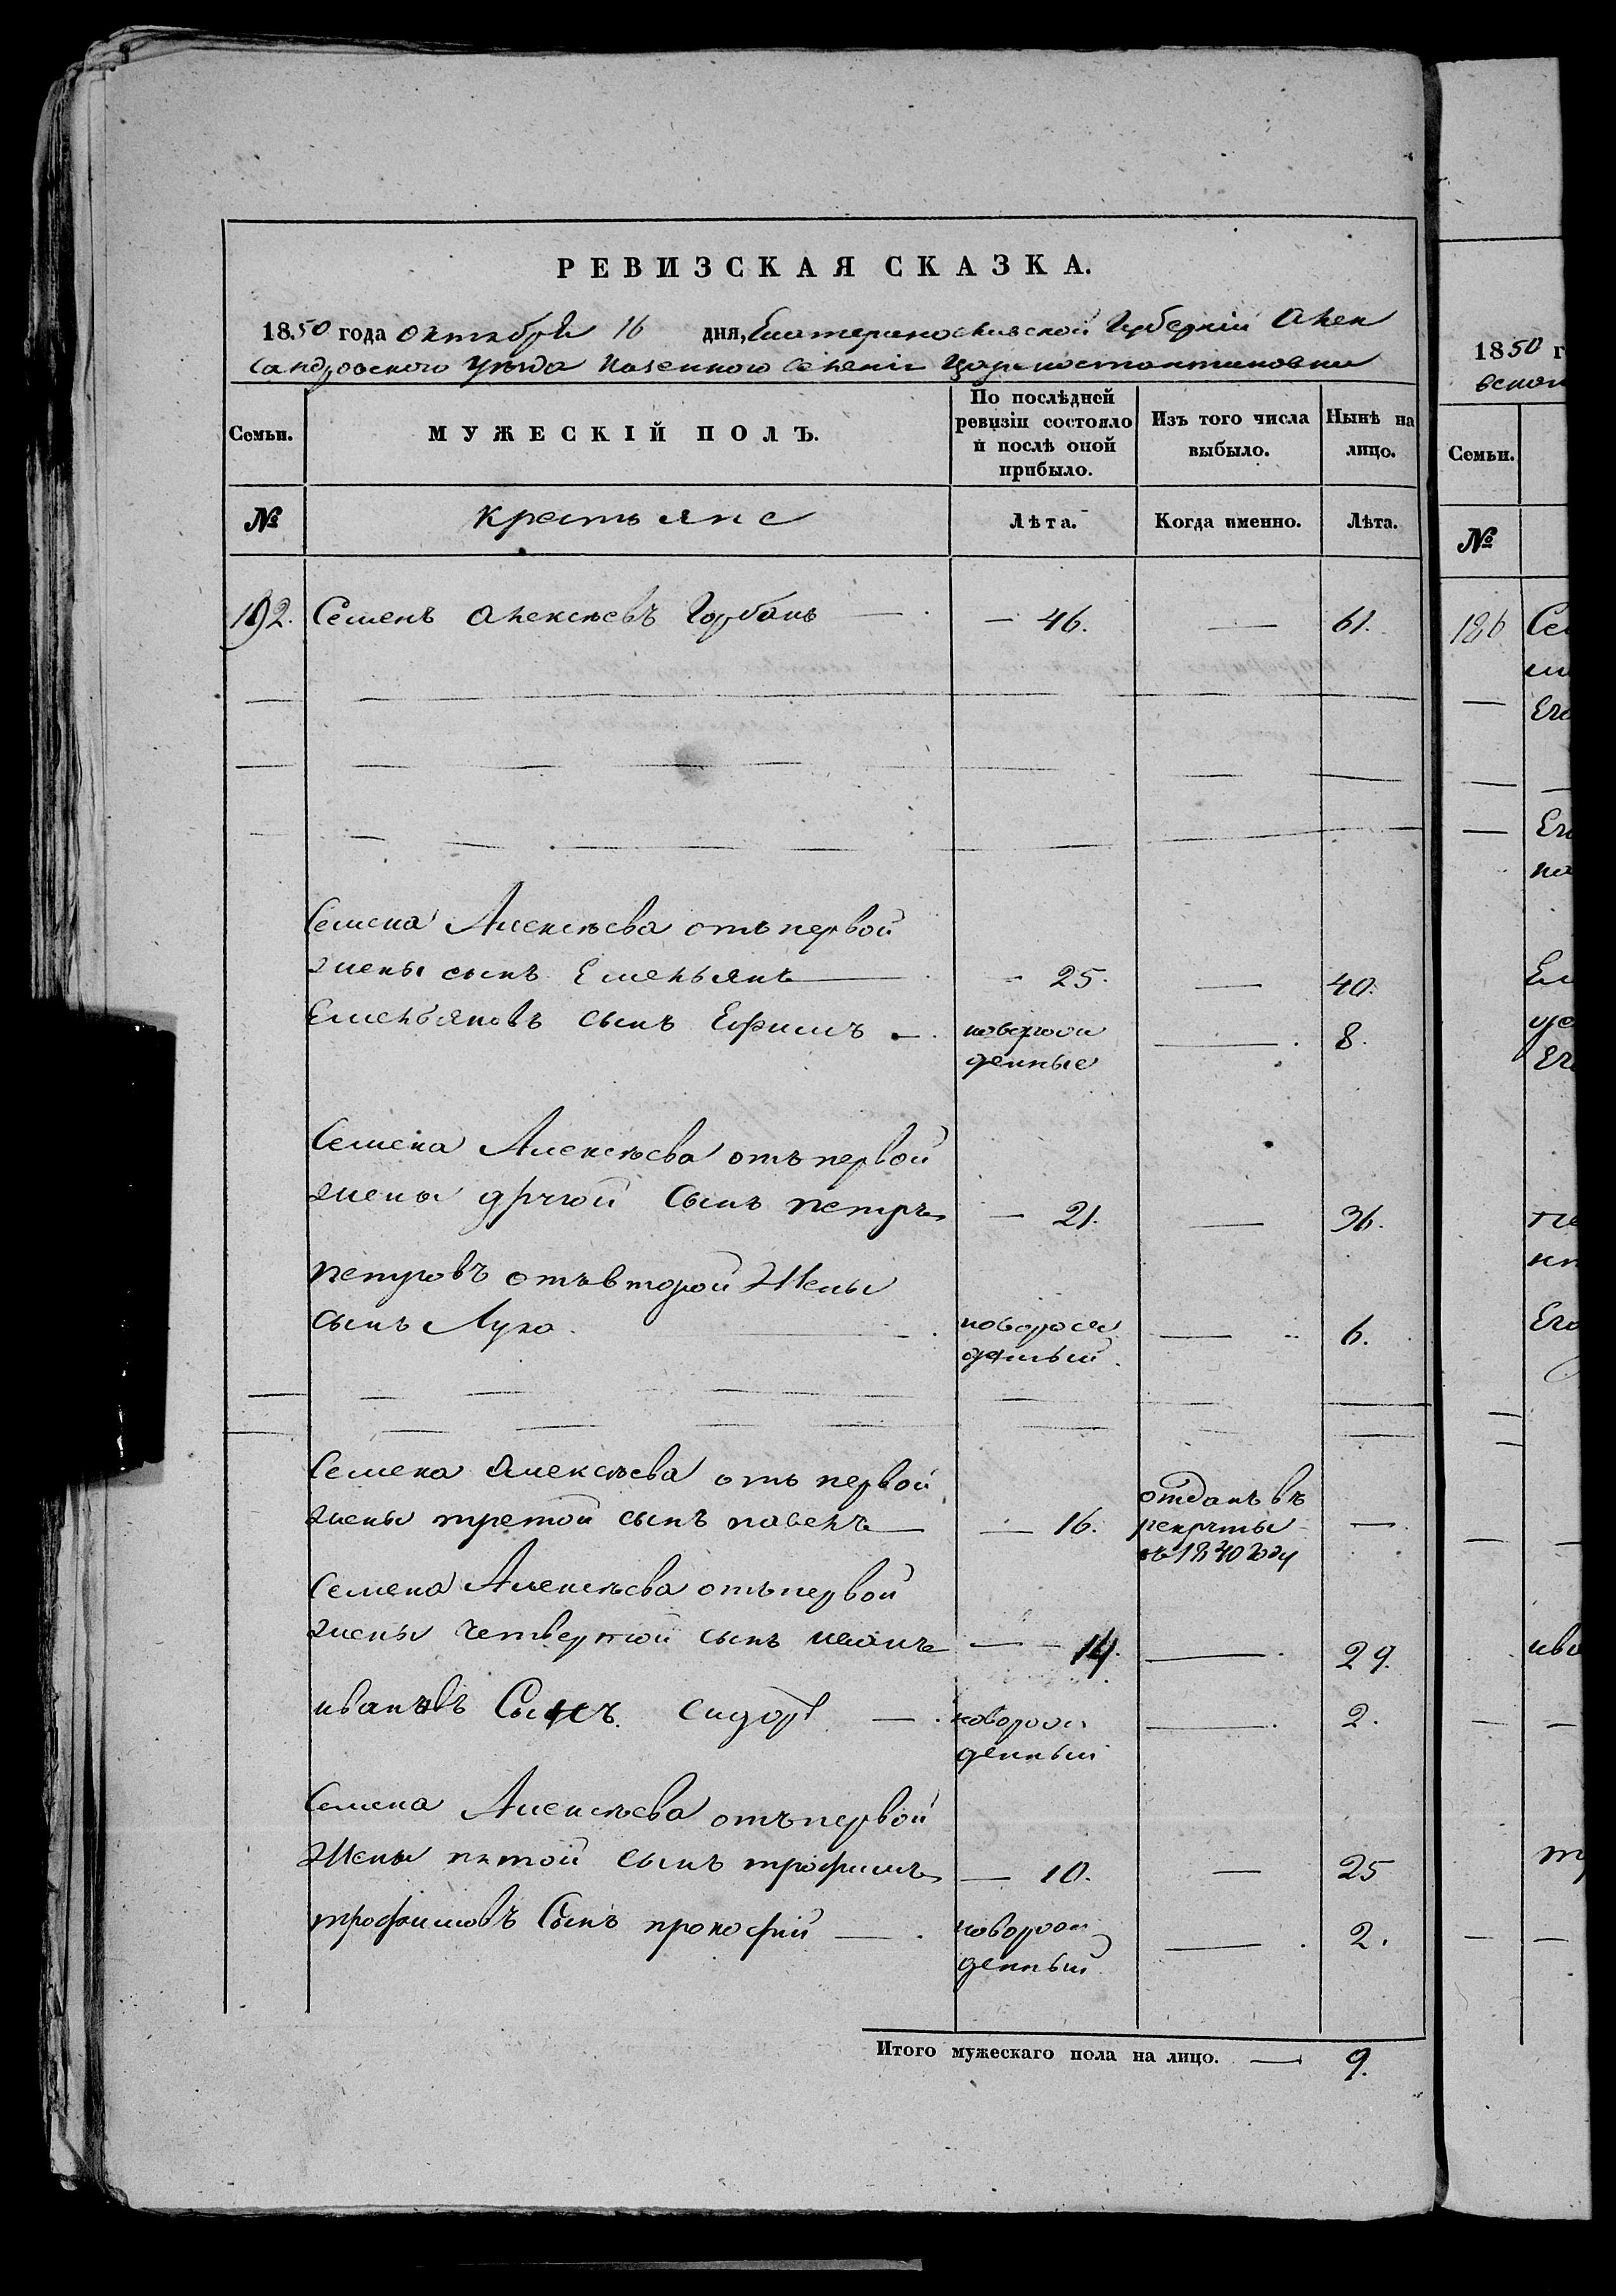 РЕВИЗСКАЯ СКАЗКА.
1850 года октября 16 дня, Екатеринославской Губерніи Алек
сандровского Уѣзда Казенного Селенія Цареконстантиновки
Семьи. МУЖЕСКІЙ ПОЛЪ. По послѣдней ревизіи состояло и послѣ оной прибыло. Изъ того числа выбыло. Нынѣ на лицо.
№ крестьяне Лѣта. Когда именно. Лѣта.
192. Семенъ Алексѣевъ Горбань — 46. — 61.
Семена Алексѣева отъ первой
жены сынъ Емельянъ — 25. — 40.
Емельяновъ сынъ Ефимъ — новорож
денные — 8.
Семена Алексѣева отъ первой
жены другой сынъ петръ — 21. — 36.
петровъ отъ второй Жены
сынъ Лука — новорож
денный — 6.
Семена Алексѣева отъ первой
жены третой сынъ павелъ — 16. отданъ въ рекруты въ 1840 году —
Семена Алексѣева отъ первой
жены четвертой сынъ иванъ — 14. — 29.
ивановъ Сынъ. Сидоръ — новорож
денный — 2.
Семена Алексѣева отъ первой
Жены пятой сынъ трофимъ — 10. — 25
трофимовъ Сынъ прокофій — новорож
денный — 2.
Итого мужескаго пола на лицо. — 9.
1850 г
Семьи.
№
186